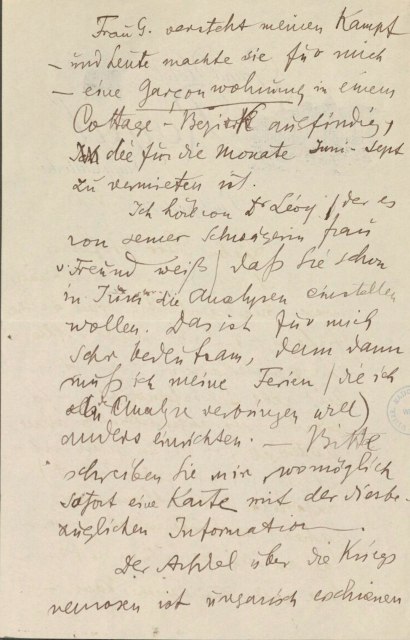 Frau G. versteht meinen Kampf
– und heute machte sie für mich
– eine Garçonwohnung in einem
Cottage-Bezirk ausfindig,
die für die Monate Juni-Sept
zu vermieten ist.
Ich höre von Dr Lévy / der es
von seiner Schwägerin Frau
v Freund weiß / daß Sie schon
in Juni die Analysen einstellen
wollen. Das ist für mich
sehr bedeutsam, denn dann
muß ich meine Ferien / die ich
in Analyse verbringen will)
anders einrichten. – Bitte
schreiben Sie mir womöglich
sofort eine Karte mit der diesbe-
züglichen Information.
Der Artikel über die Kriegs
neurosen ist ungarisch erschienen